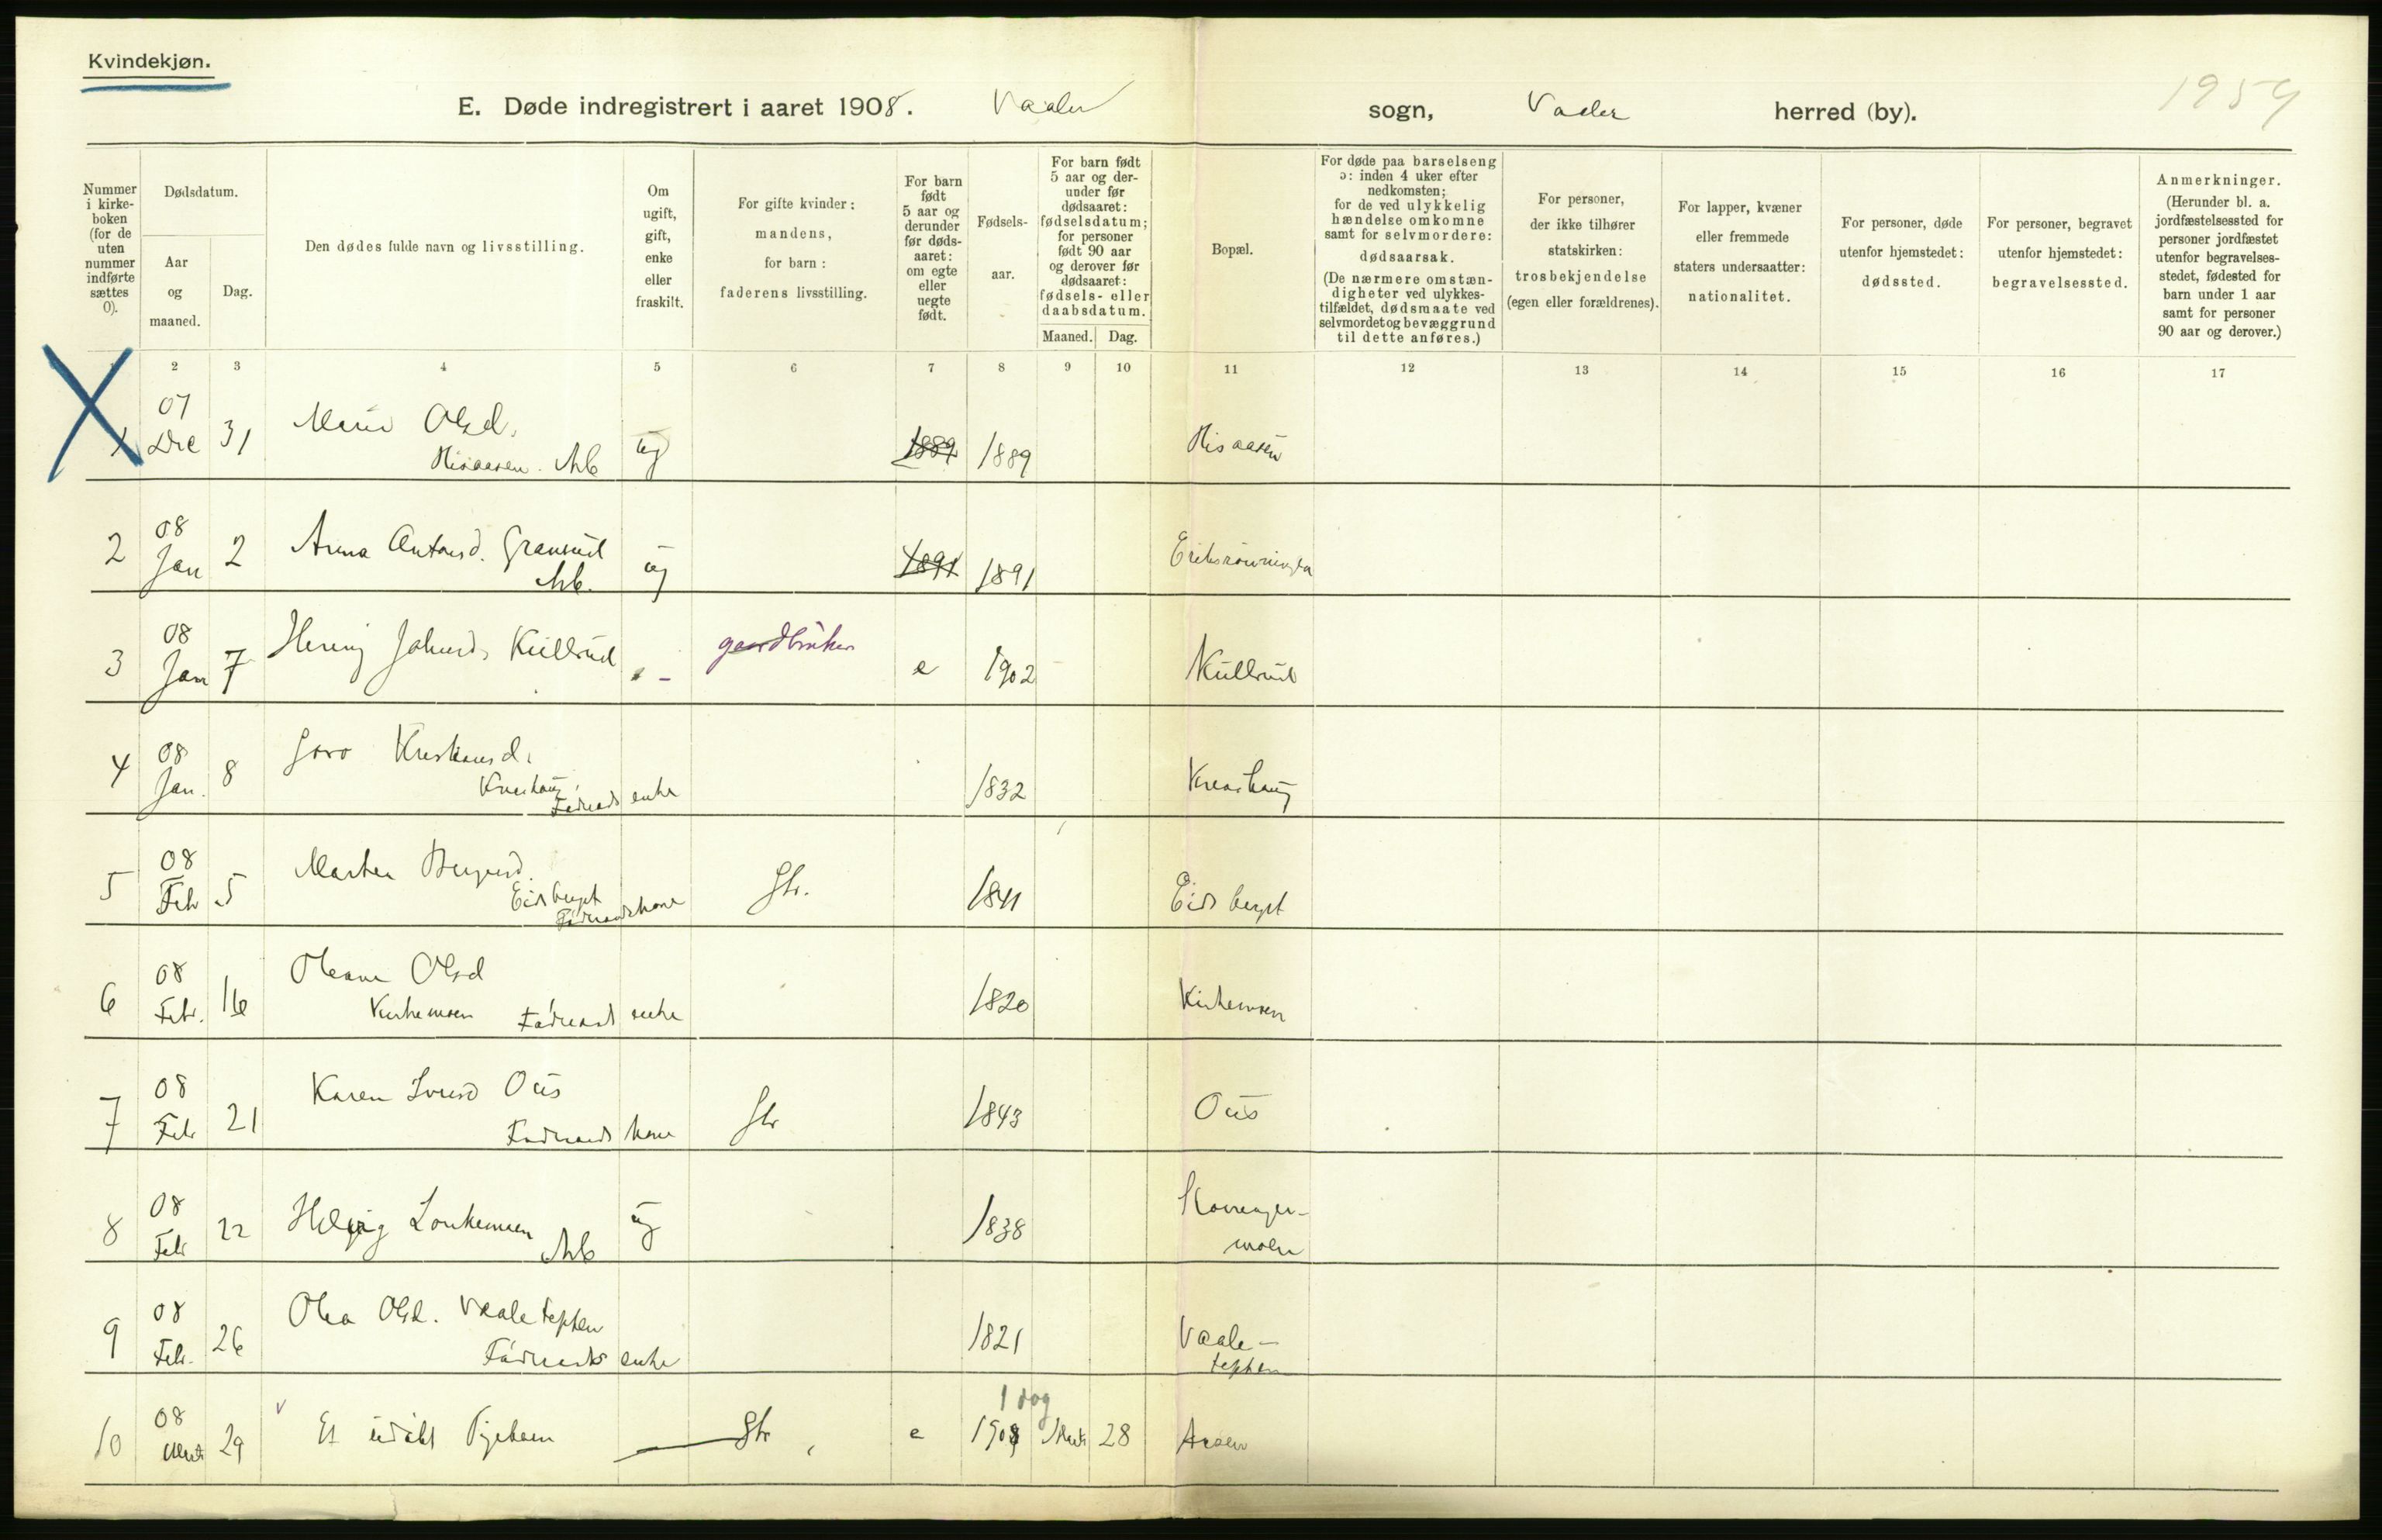 Kvindekjøn.
E. Døde indregistrert i aaret 1908. Vaaler sogn, Vaaler herred (by).
1954
Nummer i kirke-boken (for de uten nummer indførte sættes 0).
Dødsdatum.
Aar og maaned.
Dag.
Den dødes fulde navn og livsstilling.
Om ugift, gift, enke eller fraskilt.
For gifte kvinder: mandens, for barn: faderens livsstilling.
For barn født 5 aar og derunder før døds-aaret: om egte eller uegte født.
Fødsels-aar.
For barn født 5 aar og der-under før dødsaaret: fødselsdatum; for personer født 90 aar og derover før dødsaaret: fødsels- eller daabsdatum.
Maaned. Dag.
Bopæl.
For døde paa barselseng ɔ: inden 4 uker efter nedkomsten; for de ved ulykkelig hændelse omkomne samt for selvmordere: dødsaarsak. (De nærmere omstæn-digheter ved ulykkes-tilfældet, dødsmaate ved selvmordet og bevæggrund til dette anføres.)
For personer, der ikke tilhører statskirken: trosbekjendelse (egen eller forældrenes).
For lapper, kvæner eller fremmede staters undersaatter: nationalitet.
For personer, døde utenfor hjemstedet: dødssted.
For personer, begravet utenfor hjemstedet: begravelsessted.
Anmerkninger. (Herunder bl. a. jordfæstelsessted for personer jordfæstet utenfor begravelses-stedet, fødested for barn under 1 aar samt for personer 90 aar og derover.)
2 3 4 5 6 7 8 9 10 11 12 13 14 15 16 17
1 07 Dec 31 Marie Olsd. Hisaasen. Arb ug 1889 1889 Hisaasen
2 08 Jan 2 Anna Antonsd. Granrud Arb. ug 1891 1891
3 08 Jan 7 Johnsd. Kullrud - gaardbruker e 1902 Kullrud
4 08 Jan. 8 Goro Kristiansd. Føderaads enke 1832
5 08 Feb 5 Marthea Eidsberget Føderaadskone Gbr. 1841 Eidsberget
6 08 Feb. 16 Oleane Olsd Kirkemoen Føderaads enke 1820 Kirkemoen
7 08 Feb 21 Karen Iversd Ous Føderaads kone Gbr 1843 Ous
8 08 Feb 22 Arb ug 1838
9 08 Feb. 26 Olea Olsd. Vaaleteppen Føderaads enke 1821 Vaale-teppen
10 08 Marts 29 Et udøbt Pigebarn Gbr. e 1 dag 1908 Marts 28